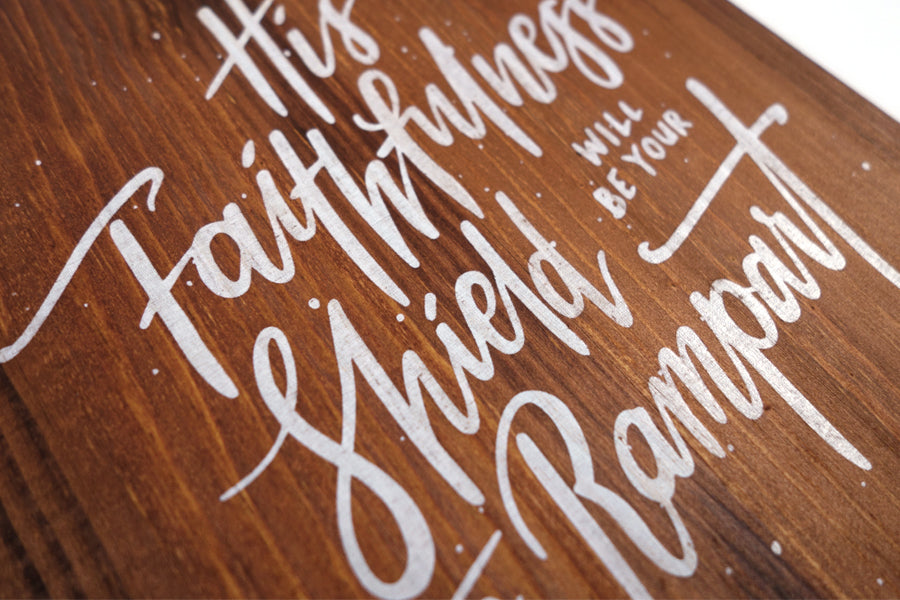 His
Faithfulness
WILL
BE YOUR
Shield
Rampart